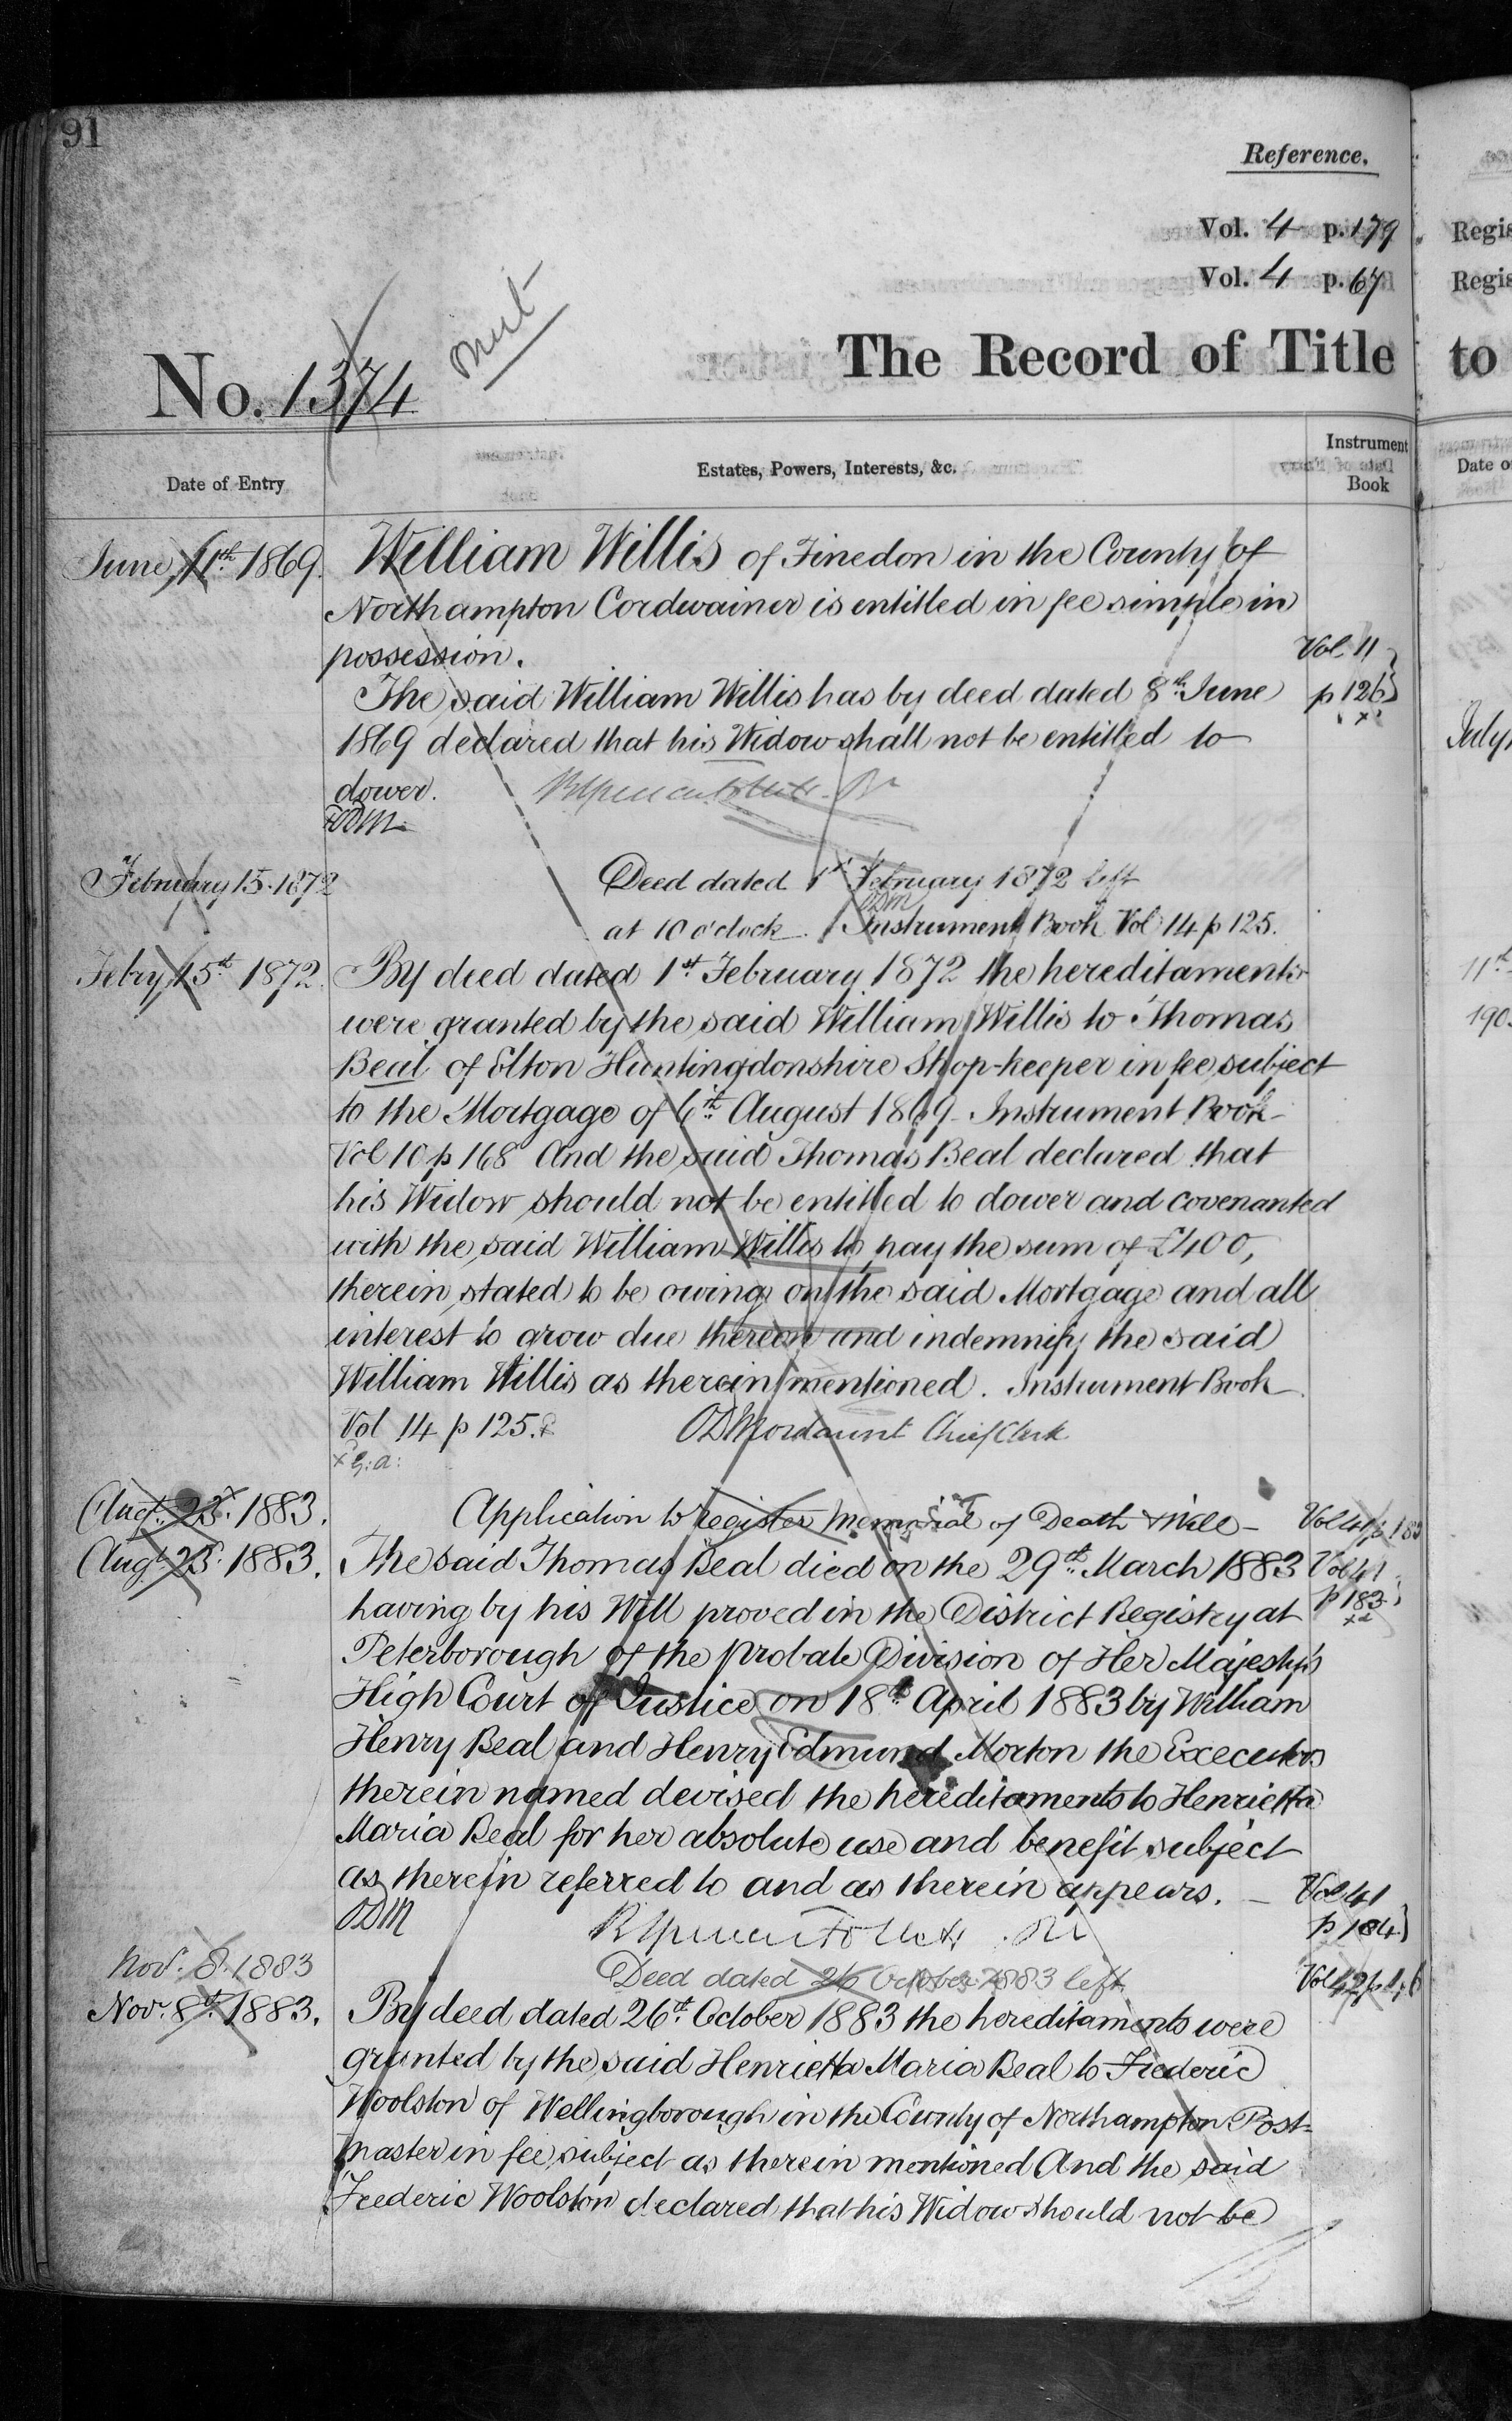 91
Reference.
Vol. 4 p. 179
Vol. 4 p. 67
Regis
Regis
No. 1374
The Record of Title
to
Date of Entry
Estates, Powers, Interests, &c.
Instrument Book
Date o
June 11th 1869.
William Willis of Finedon in the County of
Northampton Cordwainer is entitled in fee simple in
possession.
Vol. 11
The said William Willis has by deed dated 8th June
p 126
1869 declared that his Widow shall not be entitled to
July
dower.
ODM
February 15. 1872
Deed dated 1st February 1872 left
ODM
at 10 o'clock. Instrument Book Vol 14 p 125.
Febry 15th 1872.
By deed dated 1st February 1872 the hereditaments
11th
were granted by the said William Willis to Thomas
190
Beal of Elton Huntingdonshire Shop-keeper in fee subject
to the Mortgage of 6th August 1869 Instrument Book
Vol 10 p 168 And the said Thomas Beal declared that
his Widow should not be entitled to dower and covenanted
with the said William Willis to pay the sum of £400,
therein stated to be owing on the said Mortgage and all
interest to grow due thereon and indemnify the said
William Willis as therein mentioned. Instrument Book
Vol 14 p 125.
ODMordaunt Chief Clerk
Augt. 23. 1883.
Application to register memorial of Death & Will -
Vol 41 p 183
Augt 23. 1883.
The said Thomas Beal died on the 29th March 1883
Vol 41
having by his Will proved in the District Registry at
p 183
Peterborough of the Probate Division of Her Majesty's
High Court of Justice on 18th April 1883 by William
Henry Beal and Henry Edmund Morton the Executors
therein named devised the hereditaments to Henrietta
Maria Beal for her absolute use and benefit subject
as therein referred to and as therein appears. -
Vol 41
ODM
p 184
Nov. 8. 1883
Deed dated 26 October 1883 left
Nov. 8th 1883.
By deed dated 26th October 1883 the hereditaments were
granted by the said Henrietta Maria Beal to Frederic
Woolston of Wellingborough in the County of Northampton Post-
master in fee subject as therein mentioned And the said
Frederic Woolston declared that his Widow should not be